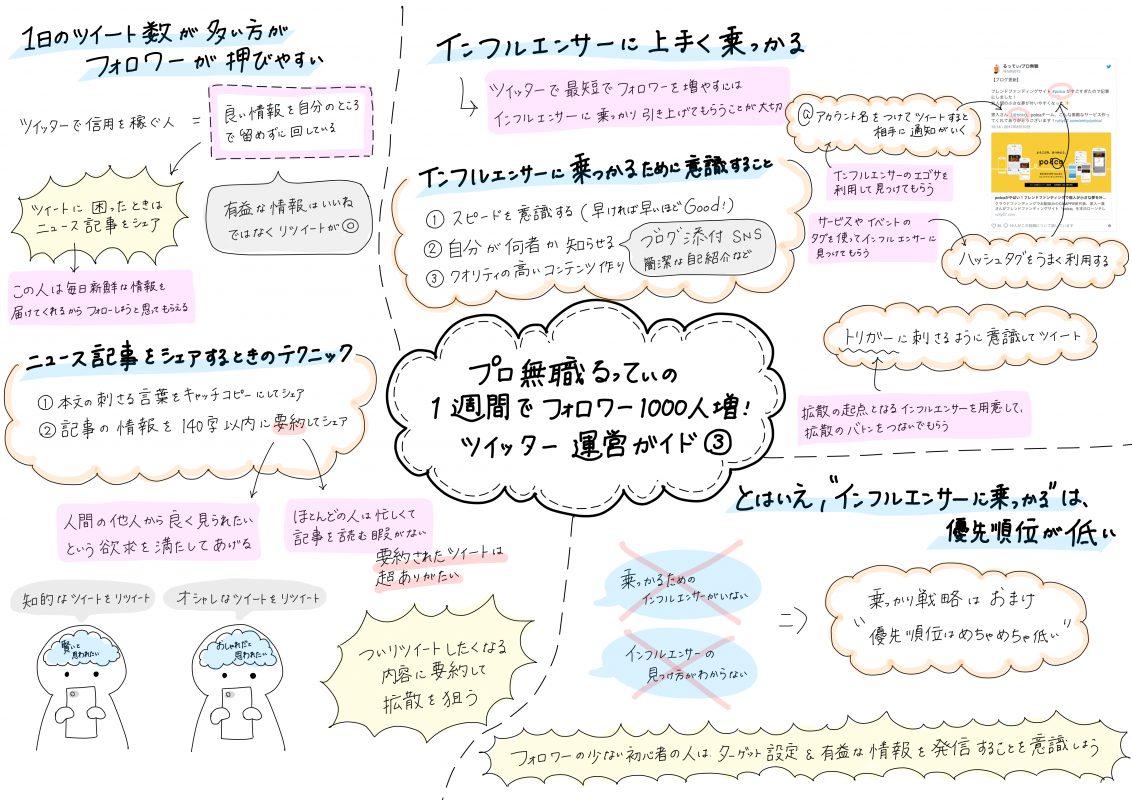 1日のツイート数が多い方が
フォロワーが押びやすい
ツイッターで信用を稼ぐ人 =
良い情報を自分のところ
で留めずに回している
ツイートに困ったときは
ニュース記事をシェア
有益な情報はいいね
ではなくリツイートが◎
この人は毎日新鮮な情報を
届けてくれるからフォローしようと思ってもらえる
ニュース記事をシェアするときのテクニック
① 本文の刺さる言葉をキャッチコピーにしてシェア
② 記事の情報を140字以内に要約してシェア
人間の他人から良く見られたい
という欲求を満たしてあげる
ほとんどの人は忙しくて
記事を読む暇がない
要約されたツイートは
超ありがたい
知的なツイートをリツイート
オシャレなツイートをリツイート
賢いと
思われたい
おしゃれだと
思われたい
ついリツイートしたくなる
内容に要約して
拡散を狙う
インフルエンサーに上手く乗っかる
ツイッターで最短でフォロワーを増やすには
インフルエンサーに乗っかり引き上げてもらうことが大切
インフルエンサーに乗っかるために意識すること
① スピードを意識する(早ければ早いほどGood!)
② 自分が何者か知らせる
③ クオリティの高いコンテンツ作り
ブログ添付 SNS
簡潔な自己紹介など
@アカウント名をつけてツイートすると
相手に通知がいく
インフルエンサーのエゴサを
利用して見つけてもらう
サービスやイベントの
タグを使ってインフルエンサーに
見つけてもらう
ハッシュタグをうまく利用する
トリガーに刺さるように意識してツイート
拡散の起点となるインフルエンサーを用意して、
拡散のバトンをつないでもらう
るってぃ/プロ無職
【ブログ更新】
フレンドファンディングサイト #polca がすごすぎたので記事
にしました!
polca
プロ無職るってぃの
1週間でフォロワー1000人増!
ツイッター運営ガイド③
とはいえ、"インフルエンサーに乗っかる"は、
優先順位が低い
乗っかるための
インフルエンサーがいない
インフルエンサーの
見つけ方がわからない
=>
乗っかり戦略はおまけ
"優先順位はめちゃめちゃ低い"
フォロワーの少ない初心者の人は、ターゲット設定&有益な情報を発信することを意識しよう